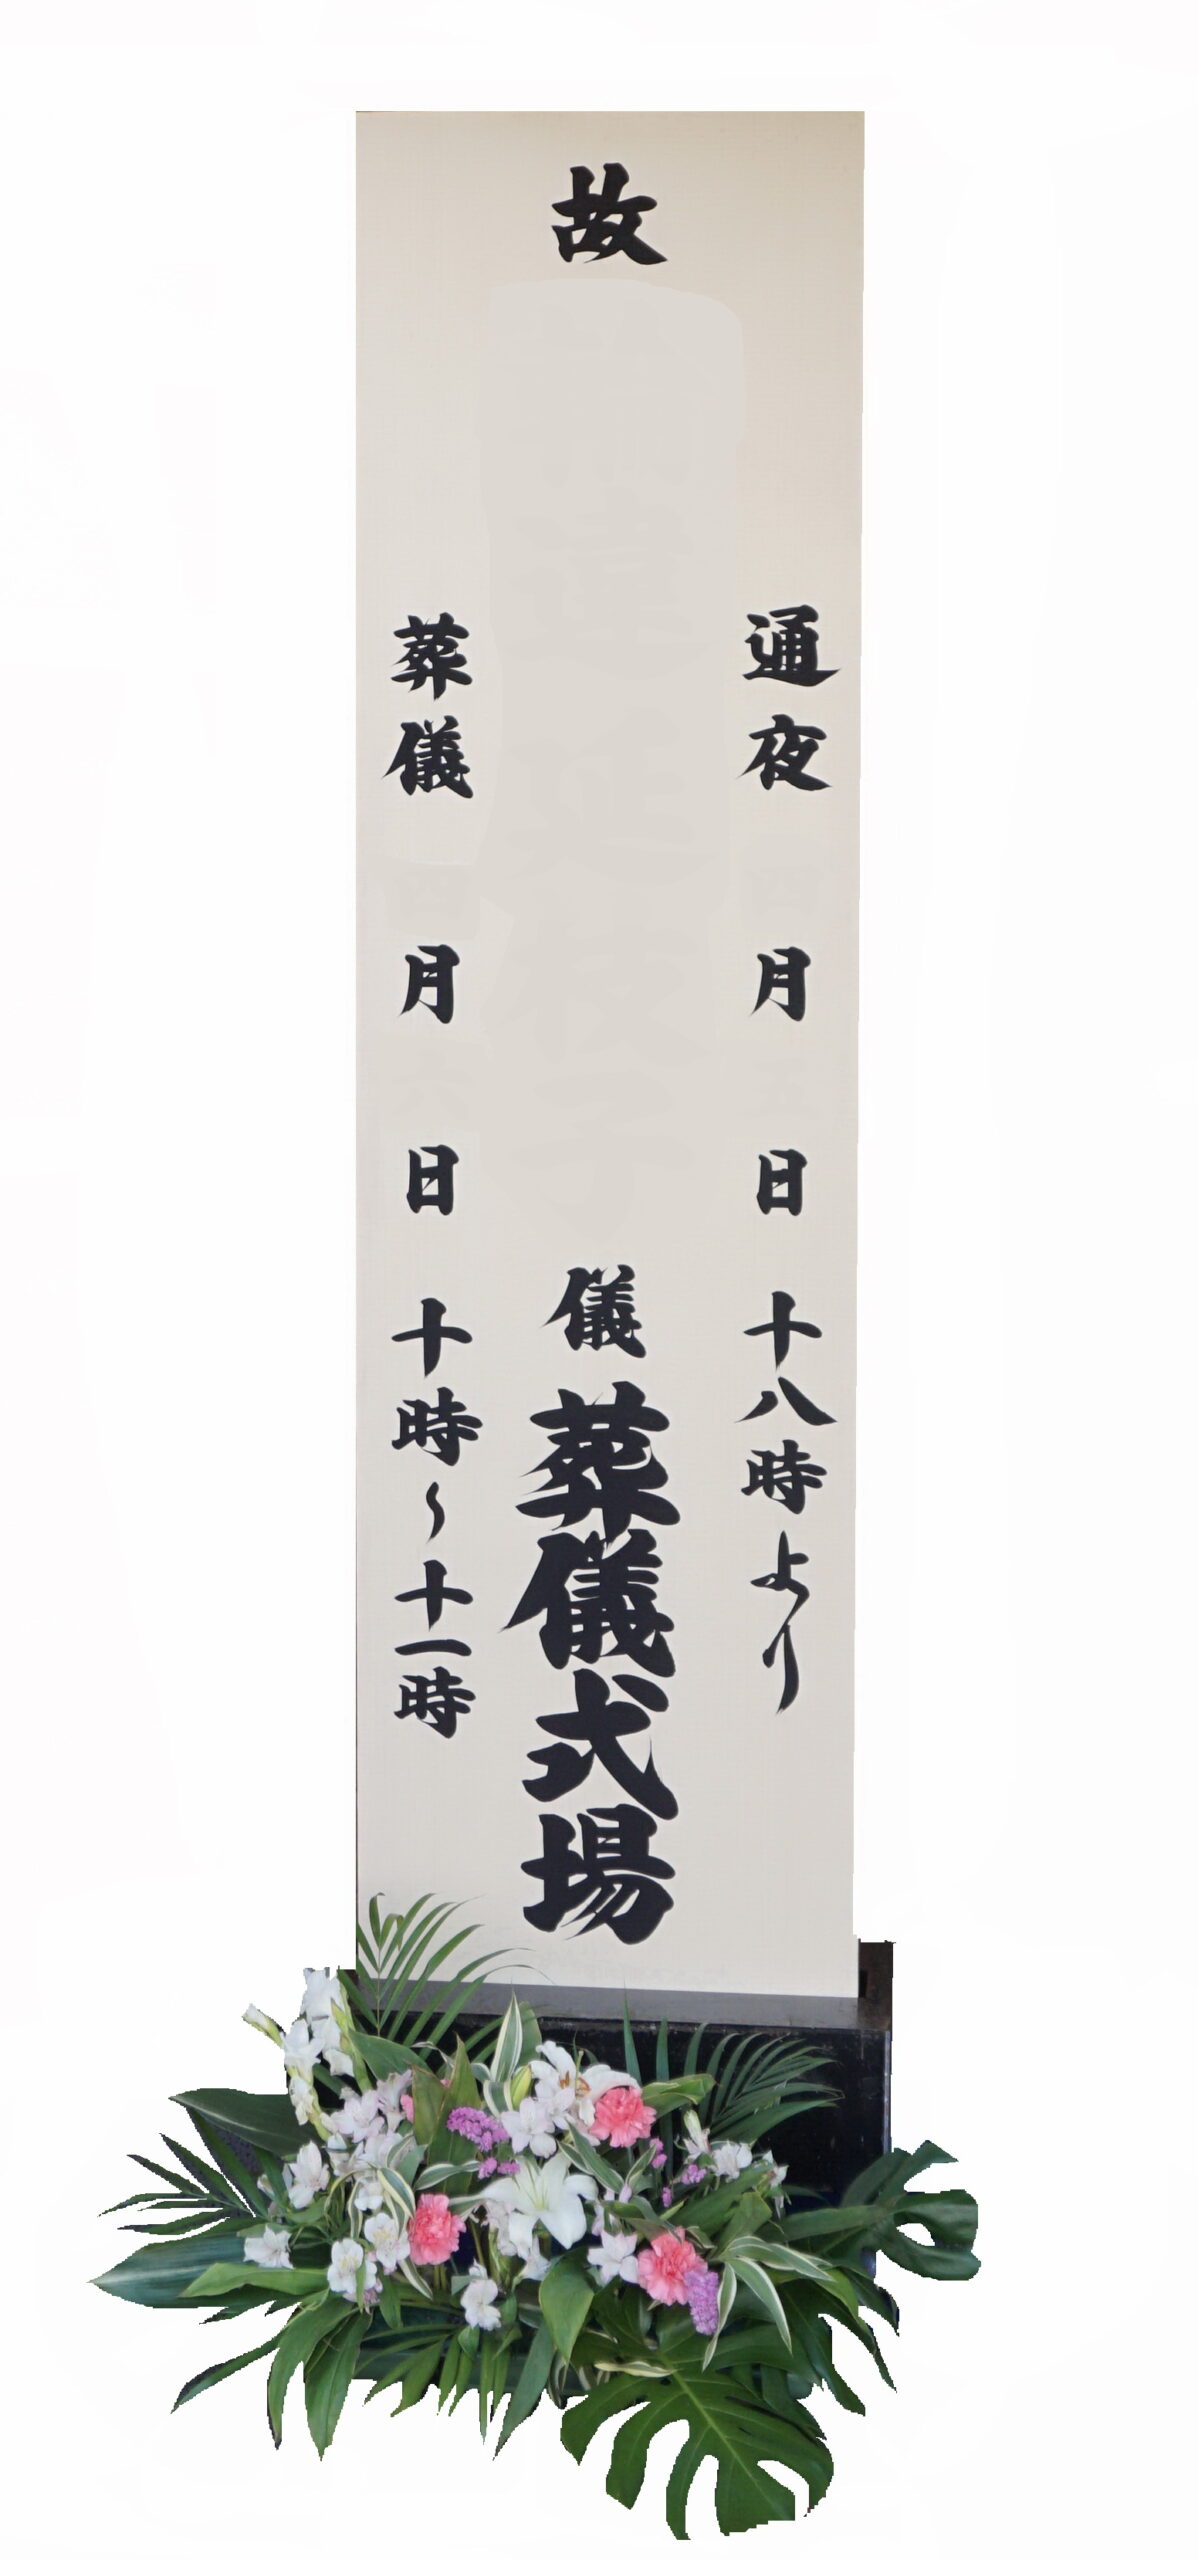 通夜 月 日 十八時より
故 儀 葬儀式場
葬儀 月 日 十時〜十一時